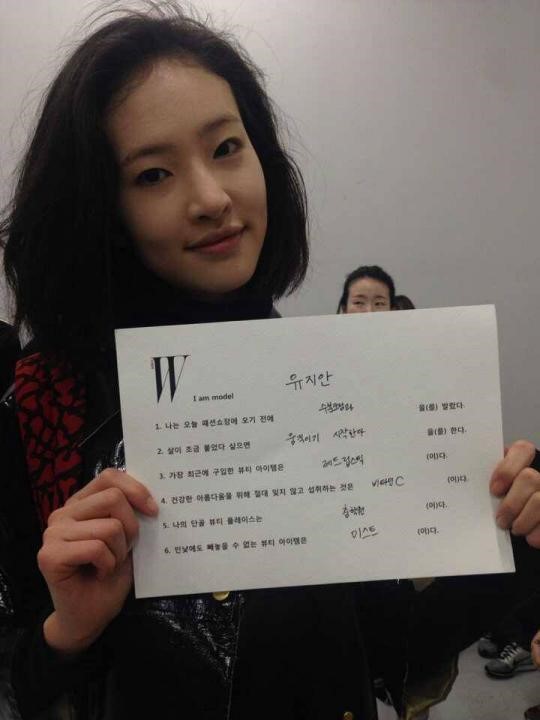 W
I am model 유지안
1. 나는 오늘 패션쇼장에 오기 전에 수분크림 을(를) 발랐다.
2. 살이 조금 붙었다 싶으면 움직이기 시작한다 을(를) 한다.
3. 가장 최근에 구입한 뷰티 아이템은 레드립스틱 (이)다.
4. 건강한 아름다움을 위해 절대 잊지 않고 섭취하는 것은 비타민C (이)다.
5. 나의 단골 뷰티 플레이스는 (이)다.
6. 민낯에도 빼놓을 수 없는 뷰티 아이템은 미스트 (이)다.